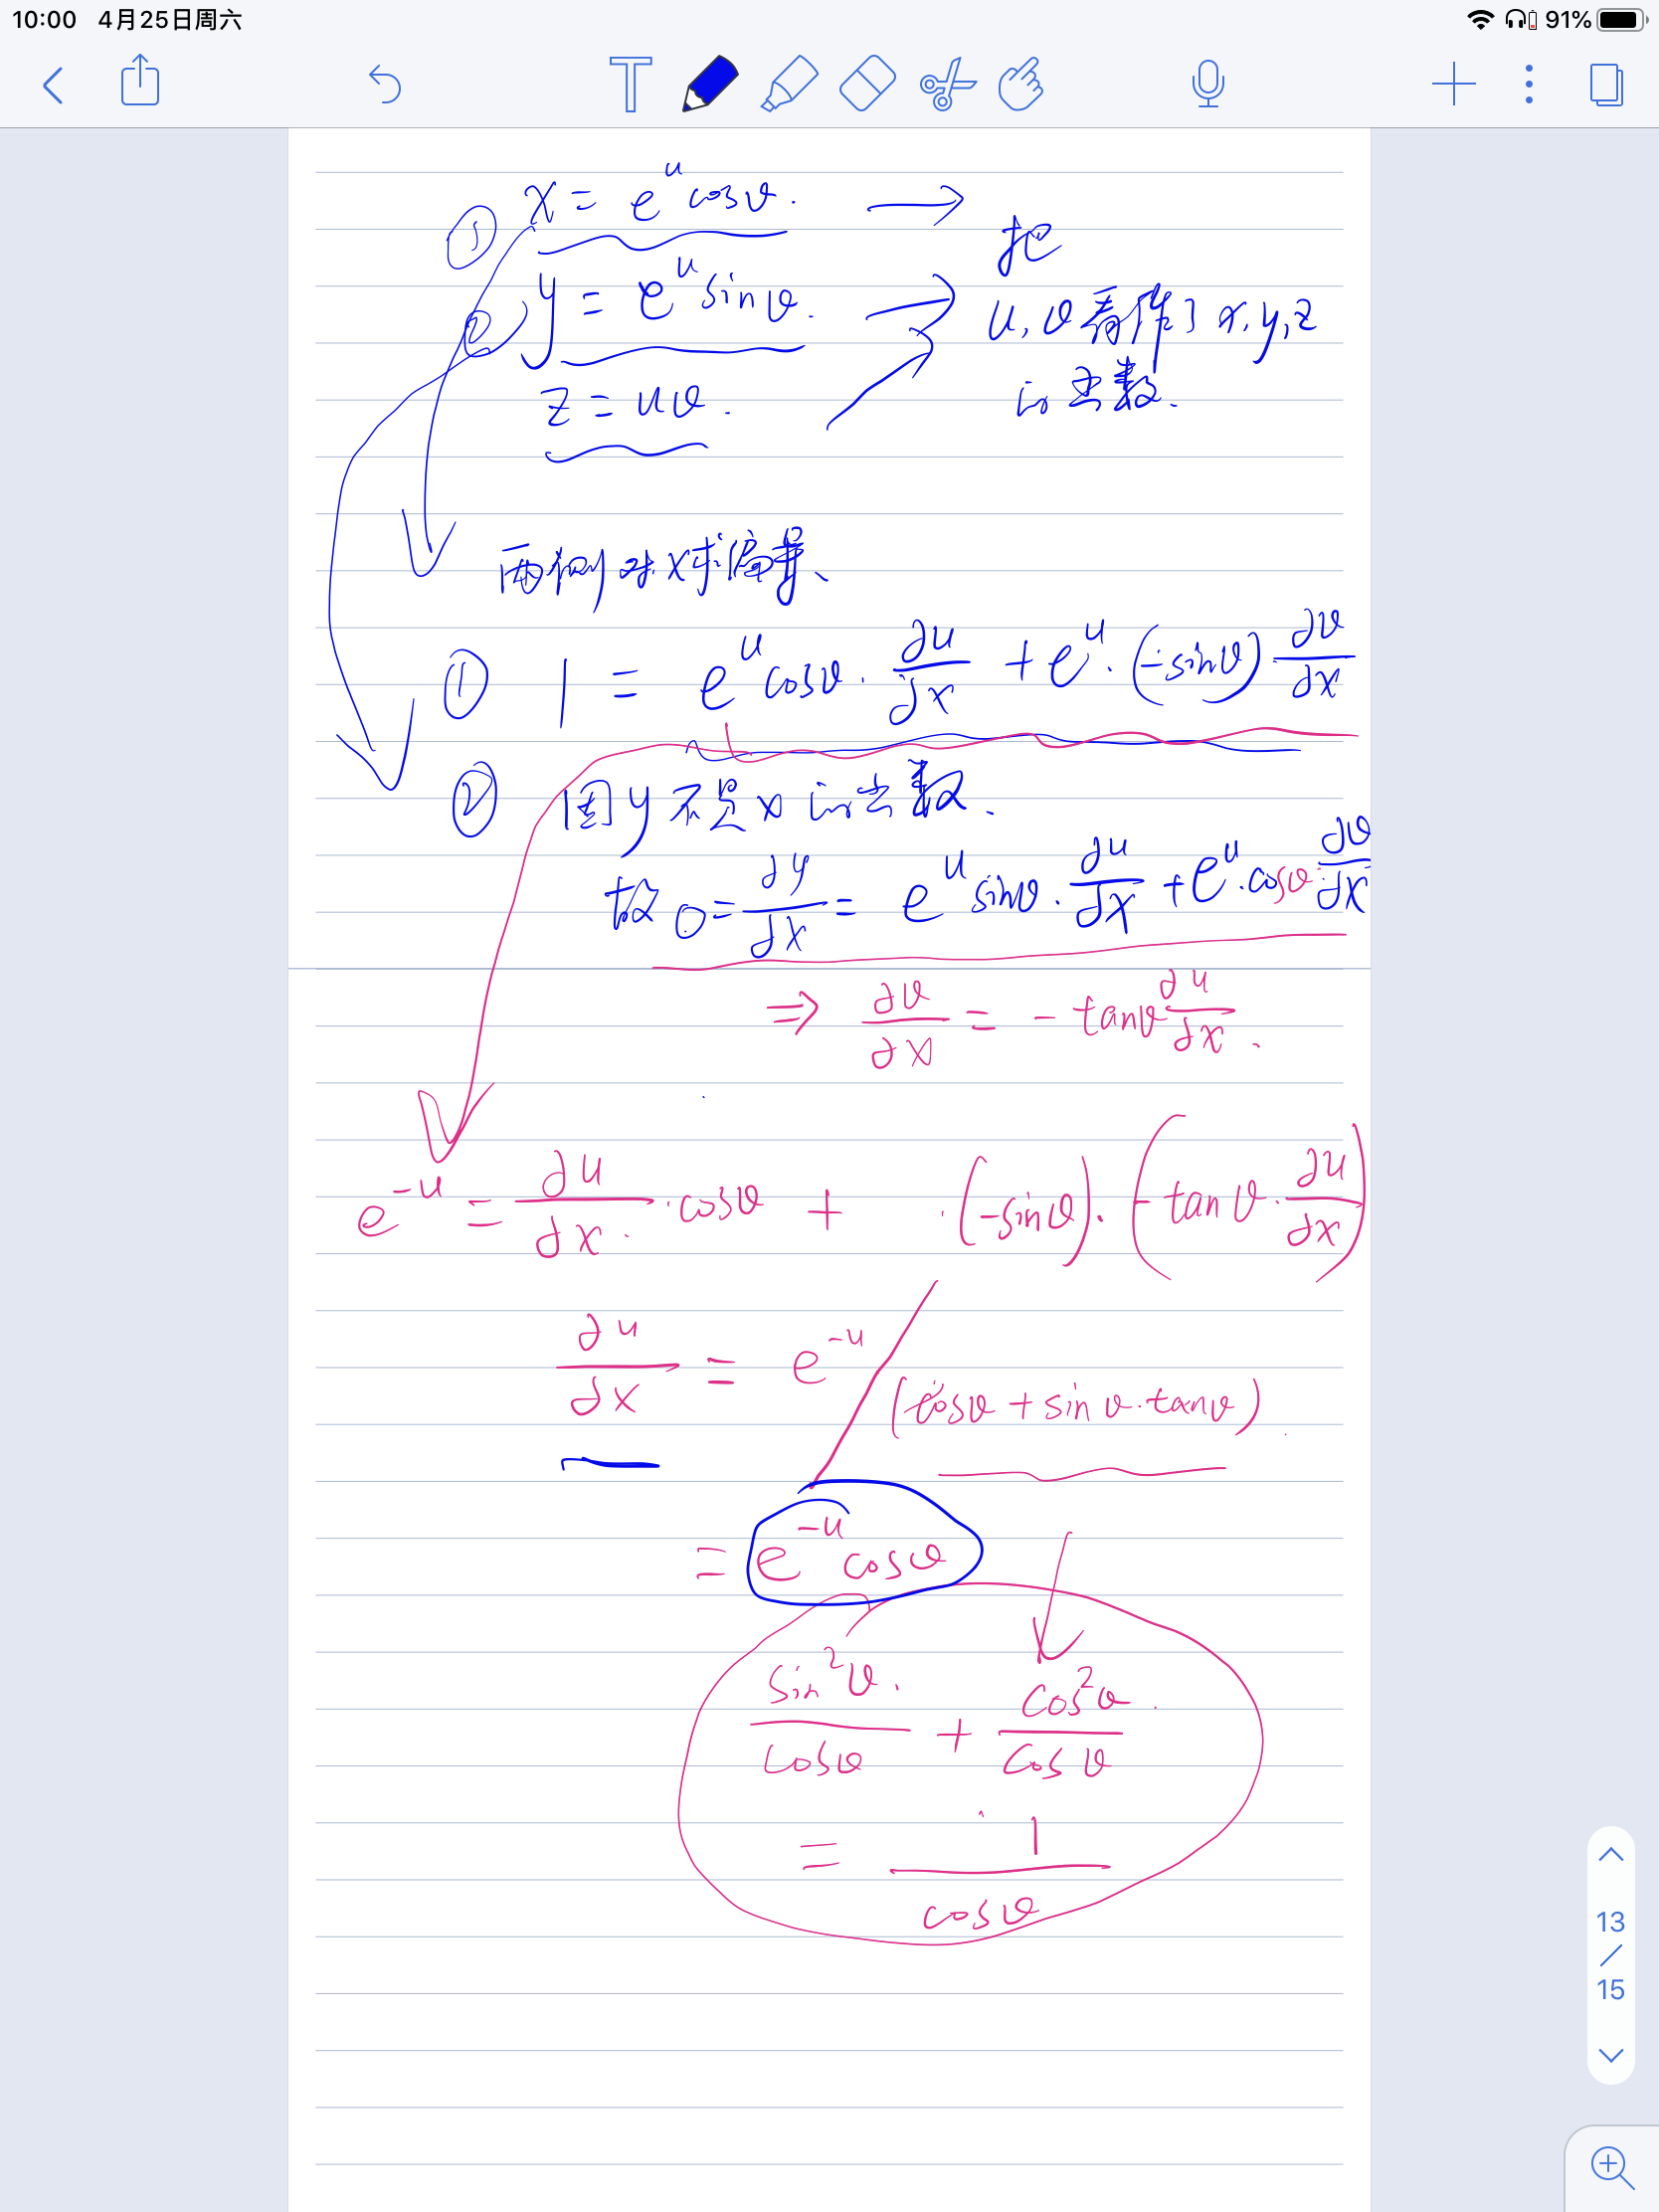 10:00 4月25日周六 91%
① x = e^u cosv.
把
② y = e^u sinv.
u, v看作了x,y,z
z = uv.
的函数.
两侧对x求偏导、
① 1 = e^u cosv · ∂u/∂x + e^u · (-sinv) ∂v/∂x
② 因y不是x的函数.
故 0 = ∂y/∂x = e^u sinv · ∂u/∂x + e^u · cosv · ∂v/∂x
⇒ ∂v/∂x = - tanv ∂u/∂x .
e^-u = ∂u/∂x · cosv + · (-sinv) · (- tanv · ∂u/∂x)
∂u/∂x = e^-u / (cosv + sinv · tanv)
= e^-u cosv
sin²v/cosv + cos²v/cosv
= 1/cosv
13
/
15